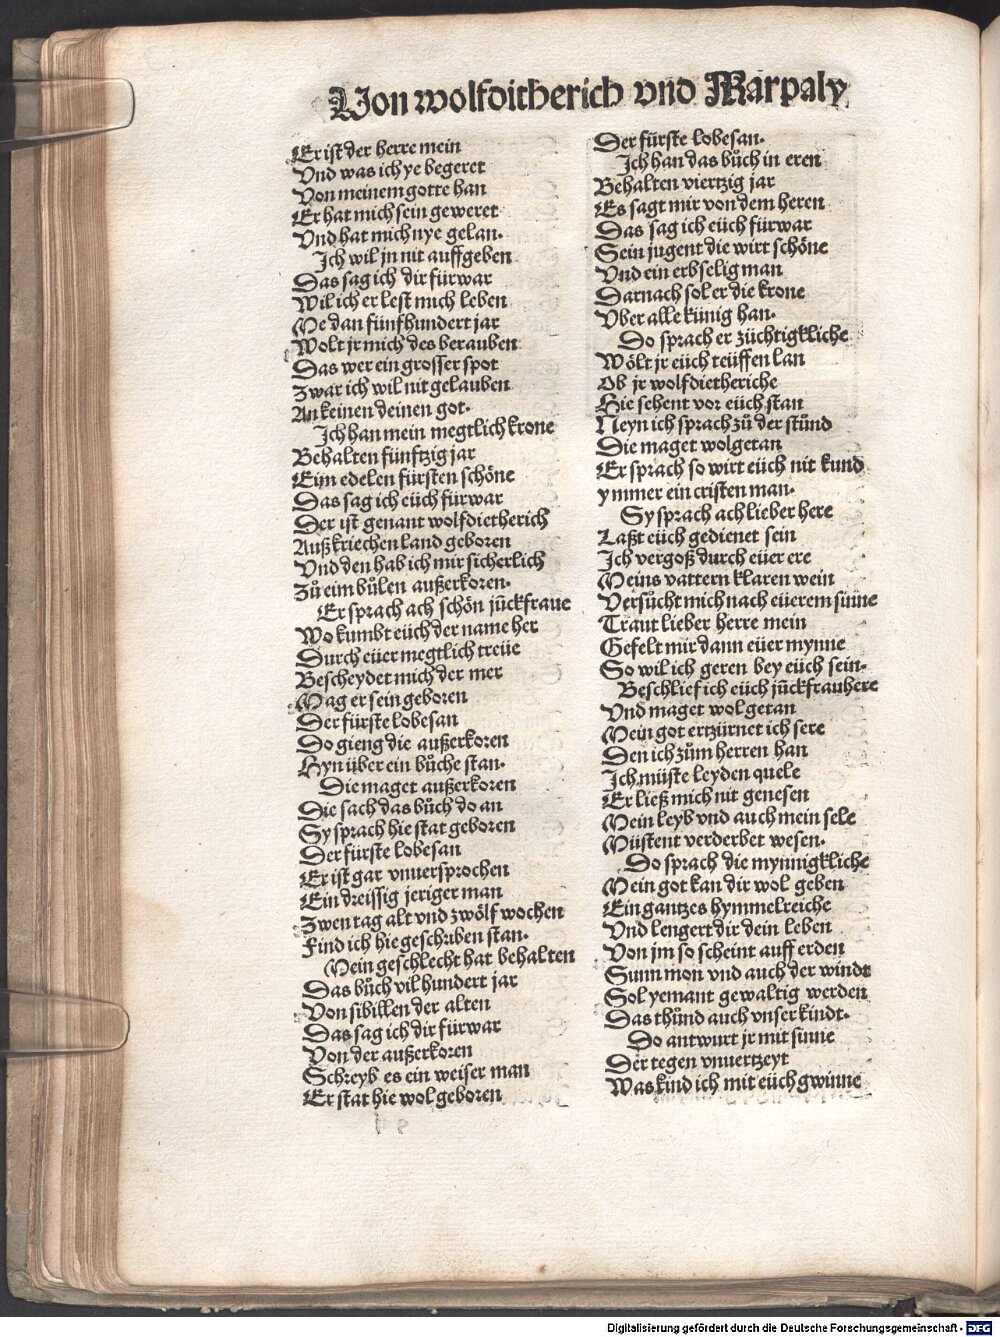 Von wolfditherich vnd Marpaly
Er ist der herre mein
Vnd was ich ye begeret
Von meinem gotte han
Er hat mich sein geweret
Vnd hat mich nye gelan.
Ich wil jn nit auffgeben
Das sag ich dir fürwar
Wil ich er lest mich leben
Me dan fünfhundert jar
Wolt jr mich des berauben
Das wer ein grosser spot
Zwar ich wil nit gelauben
An keinen deinen got.
Ich han mein megtlich krone
Behalten fünftzig jar
Eim edelen fürsten schöne
Das sag ich eüch fürwar
Der ist genant wolfdietherich
Auß kriechen land geboren
Vnd den hab ich mir sicherlich
Zů eim bůlen außerkoren.
Er sprach ach schön jūckfraue
Wo kumbt eüch der name her
Durch eüer megtlich treüe
Bescheydet mich der mer
Mag er sein geboren
Der fürste lobesan
Do gieng die außerkoren
Hyn über ein bůche stan.
Die maget außerkoren
Die sach das bůch do an
Sy sprach hie stat geboren
Der fürste lobesan
Er ist gar vnuersprochen
Ein dreissig jeriger man
Zwen tag alt vnd zwölf wochen
Find ich hie geschriben stan.
Mein geschlecht hat behalten
Das bůch vil hundert jar
Von sibillen der alten
Das sag ich dir fürwar
Von der außerkoren
Schreyb es ein weiser man
Er stat hie wol geboren
Der fürste lobesan.
Ich han das bůch in eren
Behalten viertzig jar
Es sagt mir von dem heren
Das sag ich eüch fürwar
Sein jugent die wirt schöne
Vnd ein erbselig man
Darnach sol er die krone
Vber alle künig han.
Do sprach er züchtigkliche
Wölt jr eüch teüffen lan
Ob jr wolfdietheriche
Hie sehent vor eüch stan
Neyn ich sprach zů der stůnd
Die maget wolgetan
Er sprach so wirt eüch nit kund
ymmer ein cristen man.
Sy sprach ach lieber here
Laßt eüch gedienet sein
Ich vergoß durch eüer ere
Meins vattern klaren wein
Versůcht mich nach eüerem sinne
Traut lieber herre mein
Gefelt mir dann eüer mynne
So wil ich geren bey eüch sein.
Beschlief ich eüch jūckfrau here
Vnd maget wolgetan
Mein got ertzürnet ich sere
Den ich zům herren han
Ich můste leyden quele
Er ließ mich nit genesen
Mein leyb vnd auch mein sele
Müstent verderbet wesen.
Do sprach die mynnigkliche
Mein got kan dir wol geben
Ein gantzes hymmelreiche
Vnd lengert dir dein leben
Von jm so scheint auff erden
Sunn mon vnd auch der windt
Sol yemant gewaltig werden
Das thůnd auch vnser kindt.
Do antwurt jr mit sinne
Der tegen vnuertzeyt
Was kind ich mit eüch gwinne
Digitalisierung gefördert durch die Deutsche Forschungsgemeinschaft - DFG